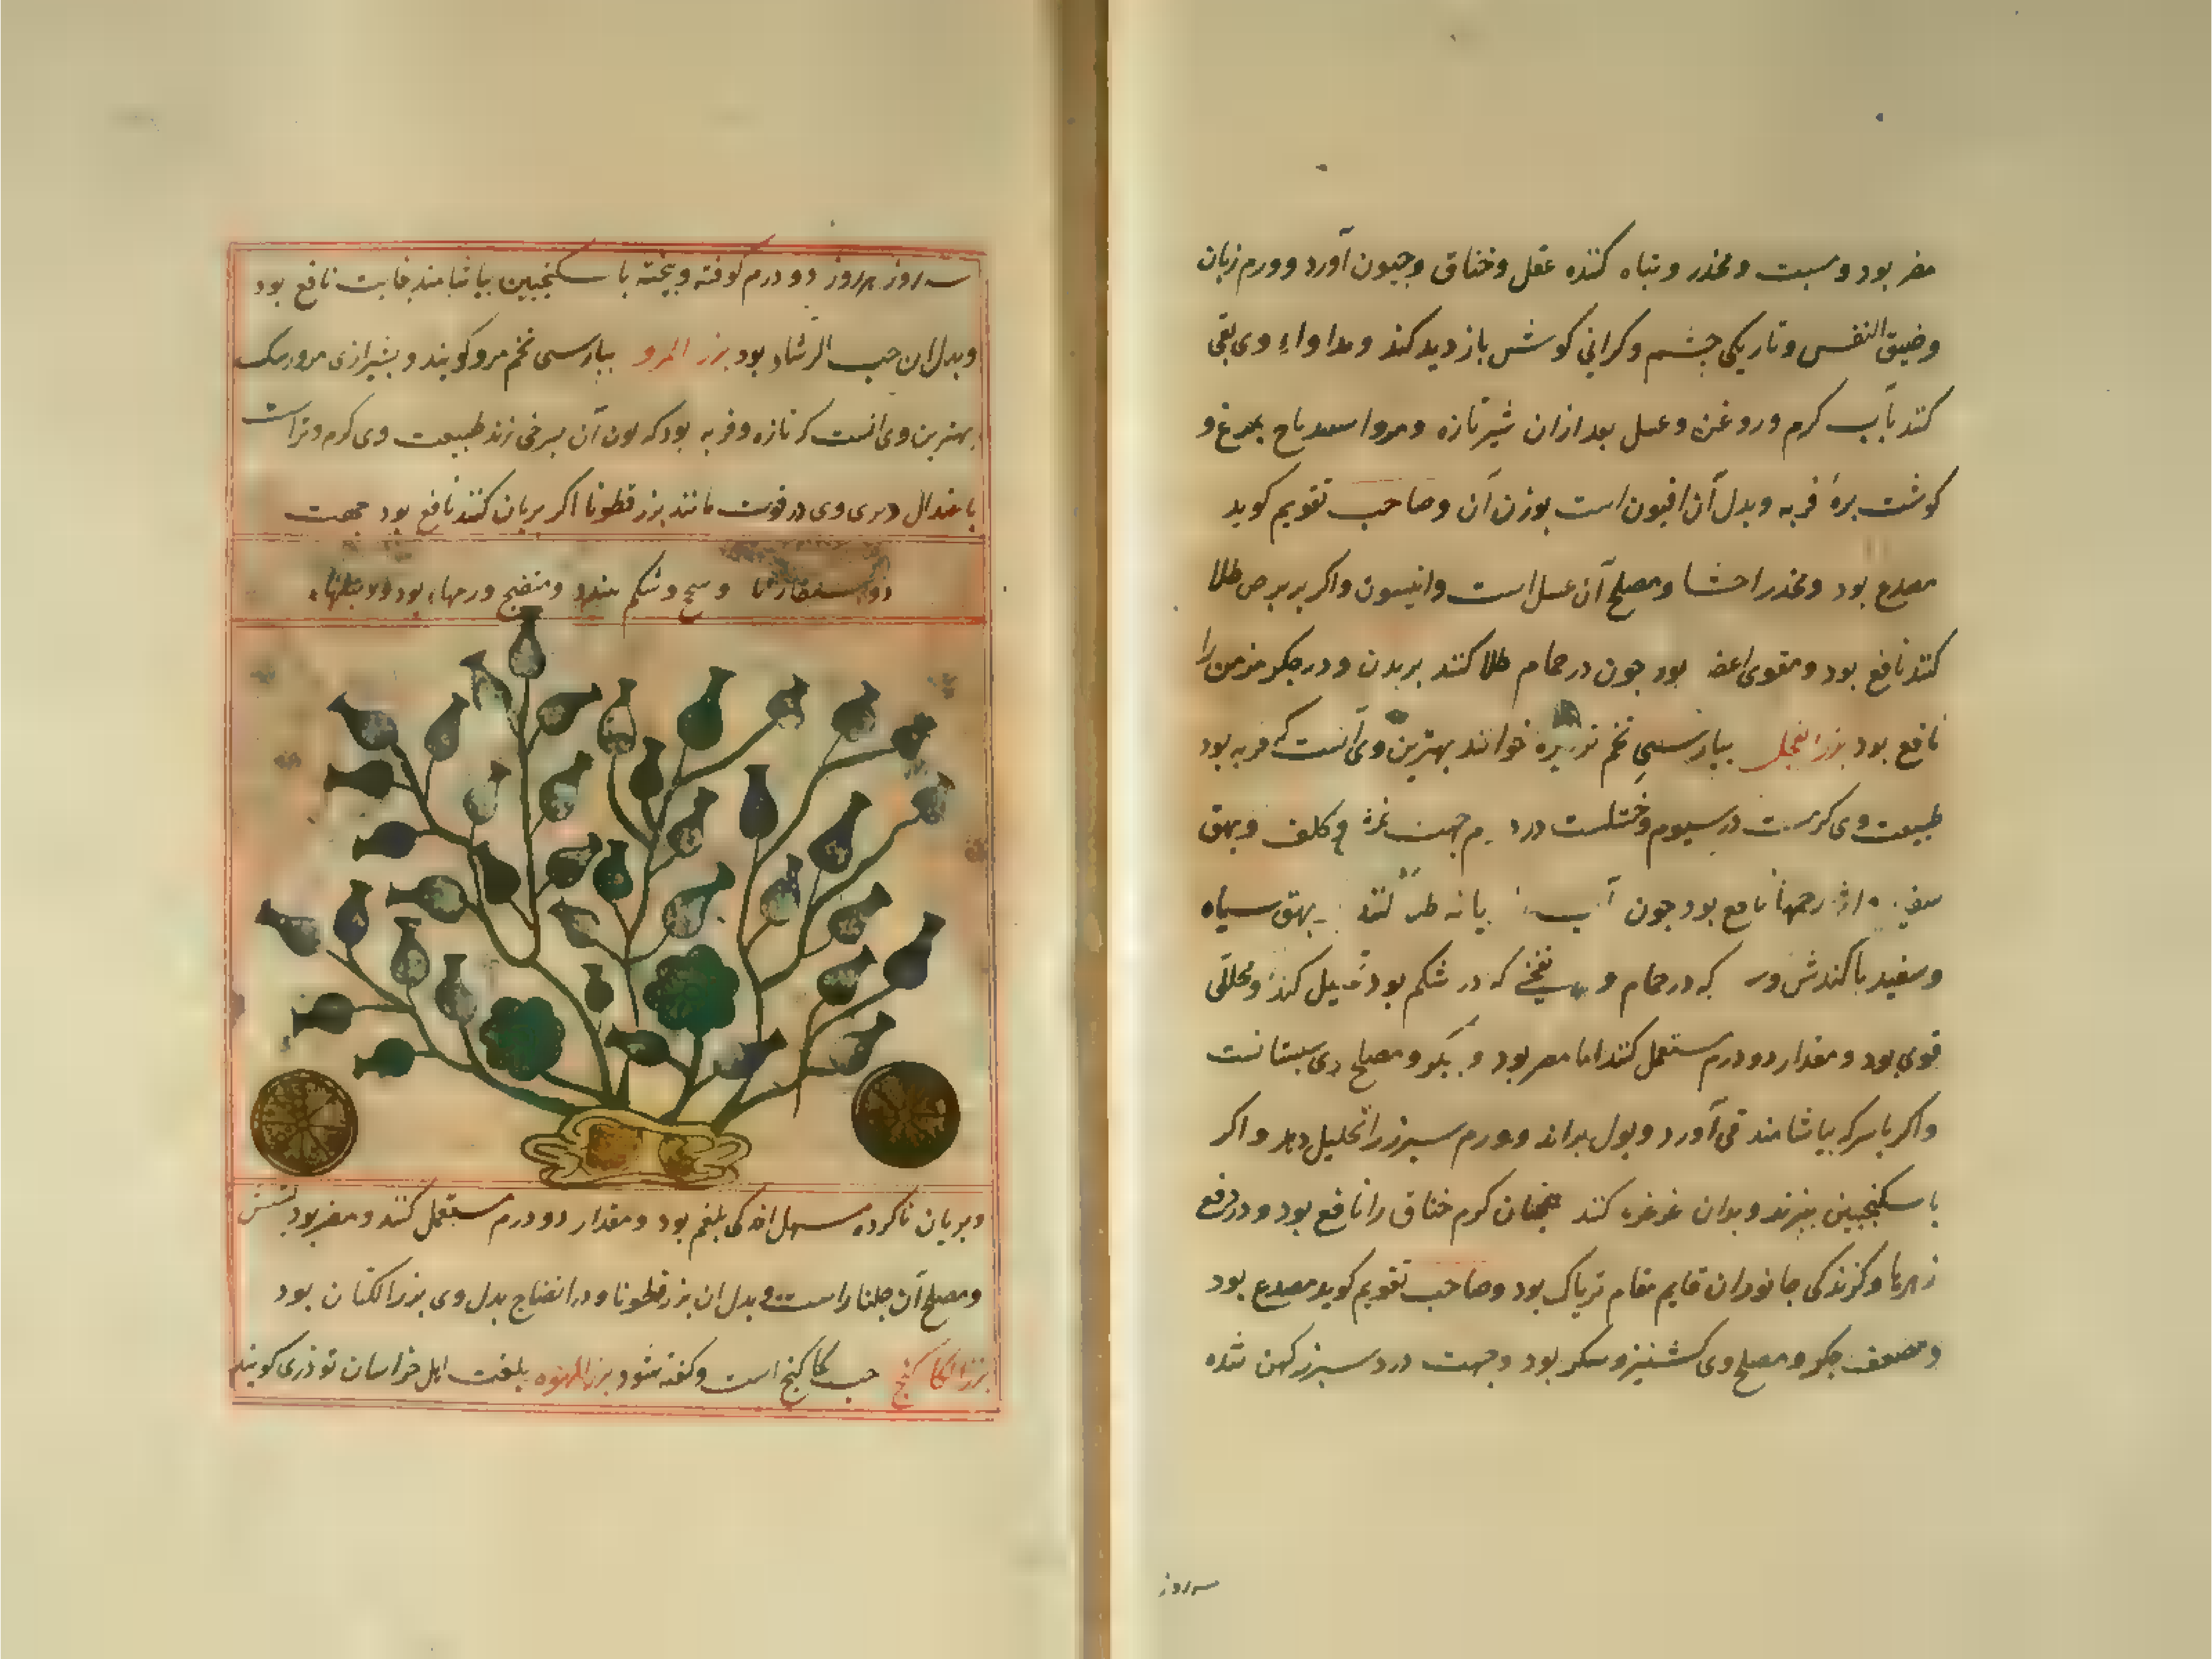 مضر بود و مسبت و مخدر و تباه کننده عقل و خناق و جنون آورد و ورم زبان
و ضیق النفس و تاریکی چشم و کرانی کوش بازدید کند و مداواء وی بقی
کنند بآب کرم و روغن و عسل بعد ازان شیر تازه و
کوشت برهٔ فربه و بدل آن افیون است بوزن آن و صاحب تقویم کوید
مصدع بود و مخدر احشا و مصلح آن عسل است و انیسون و اکر بر برص طلا
کنند نافع بود و مقوی اعضا بود چون در حمام طلا کنند بر بدن و در جکر مزمن را
نافع بود بزر الفجل بپارسی تخم تربزه خوانند بهترین وی آنست که فربه بود
طبیعت وی کرمست در سیوم و خشکست در دویم جهت نمش و کلف و بهق
نافع بود چون بهق سیاه
و سفید با کندش و سرکه در حمام و نفخی که در شکم بود تحلیل کند و محللی
قوی بود و مقدار دو درم مستعمل کنند اما مضر بود و مصلح وی سپستانست
و اکر با سرکه بیاشامند قی آورد و بول براند و ورم سپرز را تحلیل دهد و اکر
با سکنجبین بپزند و بدان غرغره کنند همچنان کرم خناق را نافع بود و در دفع
زهرها و کزندکی جانوران قایم مقام تریاک بود و صاحب تقویم کوید مصدع بود
و مضعف جکر و مصلح وی کشنیز و سکر بود و جهت درد سپرز کهن شده
سه روز
سه روز هر روز دو درم کوفته و بیخته با سکنجبین بیاشامند بغایت نافع بود
و بدل ان حب الرشاد بود بزر المرو بپارسی تخم مرو کویند و بشیرازی مرورشک
بهترین وی آنست که تازه و فربه بود که لون آن بسرخی زند طبیعت وی کرم و تر است
باعتدال و وی در قوت مانند بزر قطونا اکر بریان کنند نافع بود جهت
و سحج و شکم ببندد و منضج ورمهاء بود و دملهاء
و بریان ناکرده مسهل اندکی بلغم بود و مقدار دو درم مستعمل کنند و مضر بود بشش
و مصلح آن جلنار است و بدل ان بزر قطونا و در انضاج بدل وی بزر الکتان بود
بزر الکاکنج حب کاکنج است و کفته شود بزر الهوه بلغت اهل خراسان تودری کویند